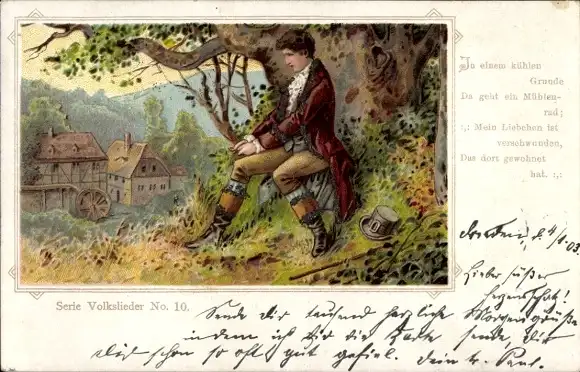 In einem kühlen
Grunde
Da geht ein Mühlen-
rad;
:,: Mein Liebchen ist
verschwunden,
Das dort gewohnet
hat. :,:
Serie Volkslieder No. 10.
Dresden, d. 4/1.03.
Lieber süßer
Herzensschatz!
Sende dir tausend herzliche Morgengrüße
indem ich dir die Karte sende, die
dir schon so oft gut gefiel. Dein tr. Paul.